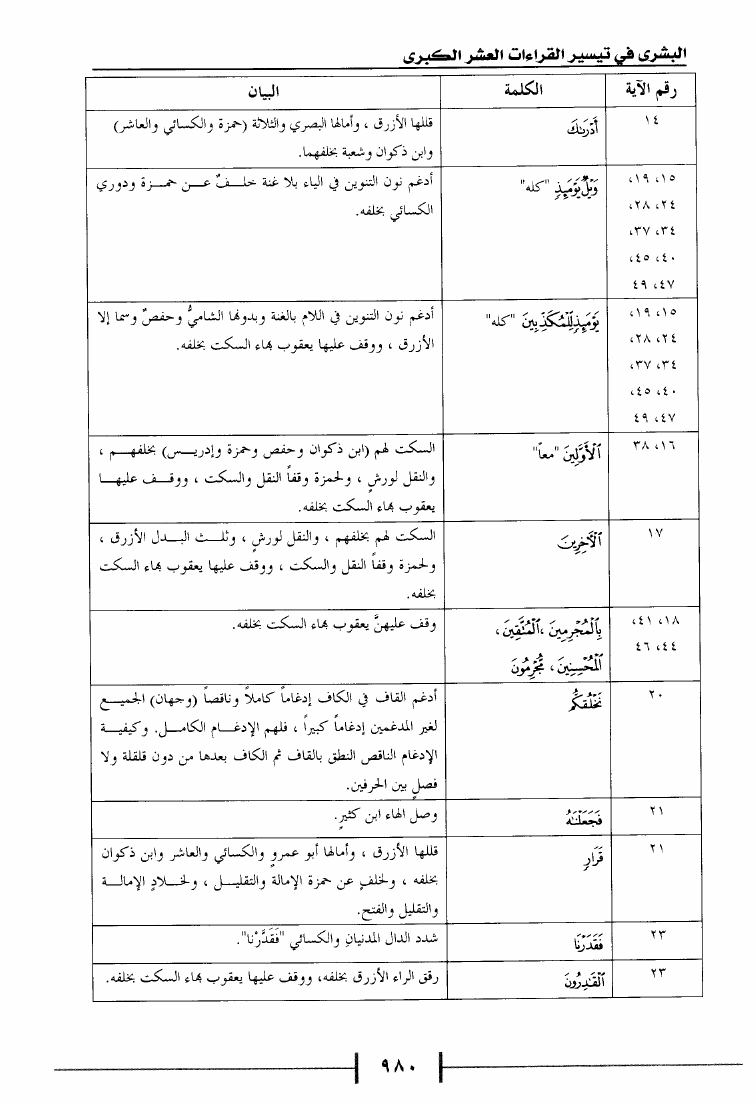 البشرى في تيسير القراءات العشر الكبرى
رقم الآية الكلمة البيان
١٤ أَدْرَىٰكَ قللها الأزرق ، وأمالها البصري والثلاثة (حمزة والكسائي والعاشر)
وابن ذكوان وشعبة بخلفهما.
١٥، ١٩، وَيْلٌ يَوْمَئِذٍ "كله" أدغم نون التنوين في الياء بلا غنة خلفٌ عن حمزة ودوري
٢٤، ٢٨، الكسائي بخلفه.
٣٤، ٣٧،
٤٠، ٤٥،
٤٧، ٤٩
١٥، ١٩، يَوْمَئِذٍ لِّلْمُكَذِّبِينَ "كله" أدغم نون التنوين في اللام بالغنة وبدونها الشاميُّ وحفصٌ وسما إلا
٢٤، ٢٨، الأزرق ، ووقف عليها يعقوب بهاء السكت بخلفه.
٣٤، ٣٧،
٤٠، ٤٥،
٤٧، ٤٩
١٦، ٣٨ ٱلْأَوَّلِينَ "معاً" السكت لهم (ابن ذكوان وحفص وحمزة وإدريس) بخلفهم ،
والنقل لورشٍ ، ولحمزة وقفاً النقل والسكت ، ووقف عليها
يعقوب بهاء السكت بخلفه.
١٧ ٱلْآخِرِينَ السكت لهم بخلفهم ، والنقل لورشٍ ، وثلث البدل الأزرق ،
ولحمزة وقفاً النقل والسكت ، ووقف عليها يعقوب بهاء السكت
بخلفه.
١٨، ٤١، بِٱلْمُجْرِمِينَ ، ٱلْمُتَّقِينَ ، وقف عليهنَّ يعقوب بهاء السكت بخلفه.
٤٤، ٤٦ ٱلْمُحْسِنِينَ ، مُّجْرِمُونَ
٢٠ نَخْلُقكُّم أدغم القاف في الكاف إدغاماً كاملاً وناقصاً (وجهان) الجميع
لغير المدغمين إدغاماً كبيراً ، فلهم الإدغام الكامل. وكيفية
الإدغام الناقص النطق بالقاف ثم الكاف بعدها من دون قلقلة ولا
فصلٍ بين الحرفين.
٢١ فَجَعَلْنَٰهُ وصل الهاء ابن كثيرٍ.
٢١ قَرَارٍ قللها الأزرق ، وأمالها أبو عمروٍ والكسائي والعاشر وابن ذكوان
بخلفه ، ولخلفٍ عن حمزة الإمالة والتقليل ، ولخلادٍ الإمالة
والتقليل والفتح.
٢٣ فَقَدَرْنَا شدد الدال المدنيانِ والكسائي "فَقَدَّرْنا".
٢٣ ٱلْقَٰدِرُونَ رقق الراء الأزرق بخلفه، ووقف عليها يعقوب بهاء السكت بخلفه.
٩٨٠